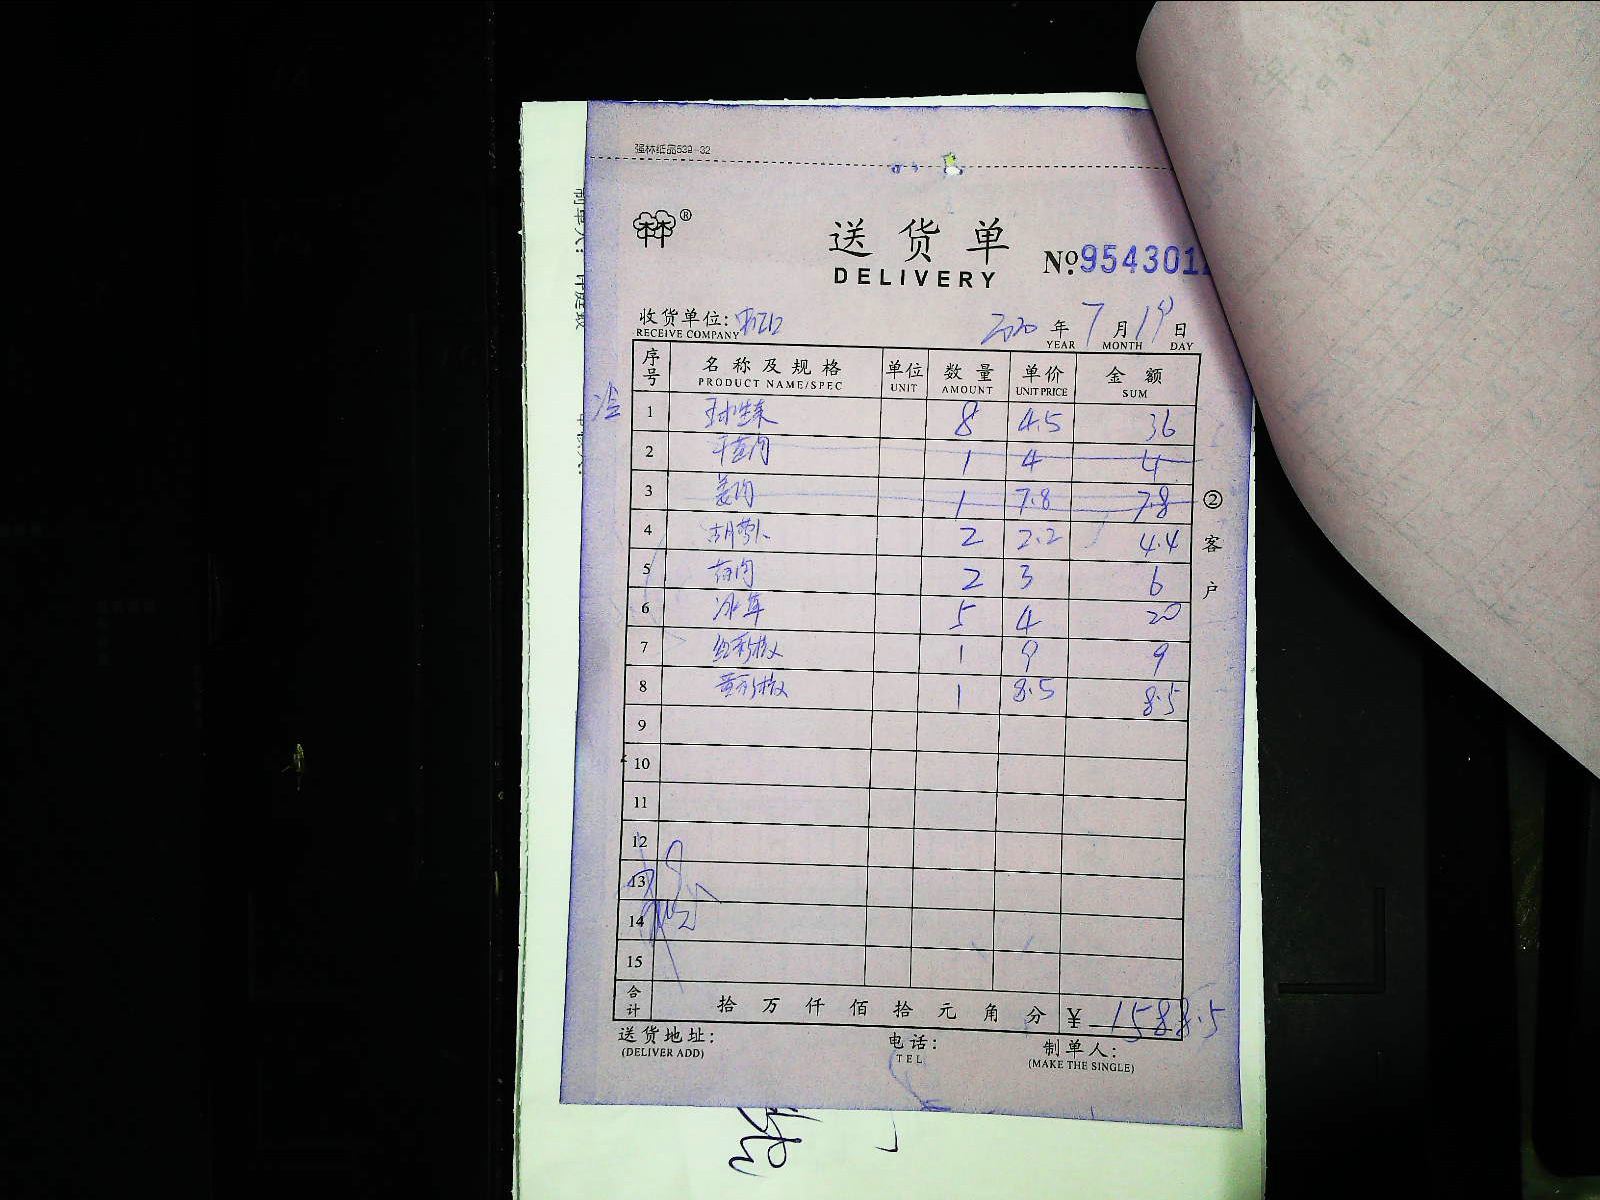 强林纸品539-32
®
送货单
DELIVERY
No. 954301
收货单位:
RECEIVE COMPANY
2020 年 7 月 19 日
YEAR MONTH DAY
序号 名称及规格 单位 数量 单价 金额
PRODUCT NAME/SPEC UNIT AMOUNT UNIT PRICE SUM
1 球生菜 8 4.5 36
2 1 4 4
3 姜肉 1 7.8 7.8
4 胡萝卜 2 2.2 4.4
5 2 3 6
6 冰草 5 4 20
7 红彩椒 1 9 9
8 黄彩椒 1 8.5 8.5
9
10
11
12
13
14
15
合计 拾 万 仟 佰 拾 元 角 分 ¥ 1588.5
送货地址: 电话: 制单人:
(DELIVER ADD) TEL (MAKE THE SINGLE)
② 客户
制单人: